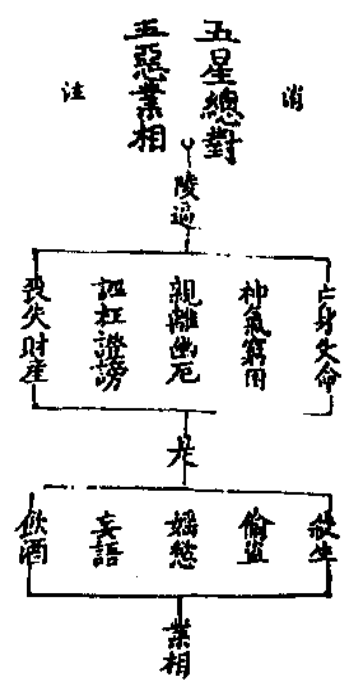 五星總對
五惡業相
消
注
陵逼
亡身失命
神氣窮困
親離幽厄
誣枉證謗
喪失財產
是
殺生
偷盜
婬愁
妄語
飲酒
業相